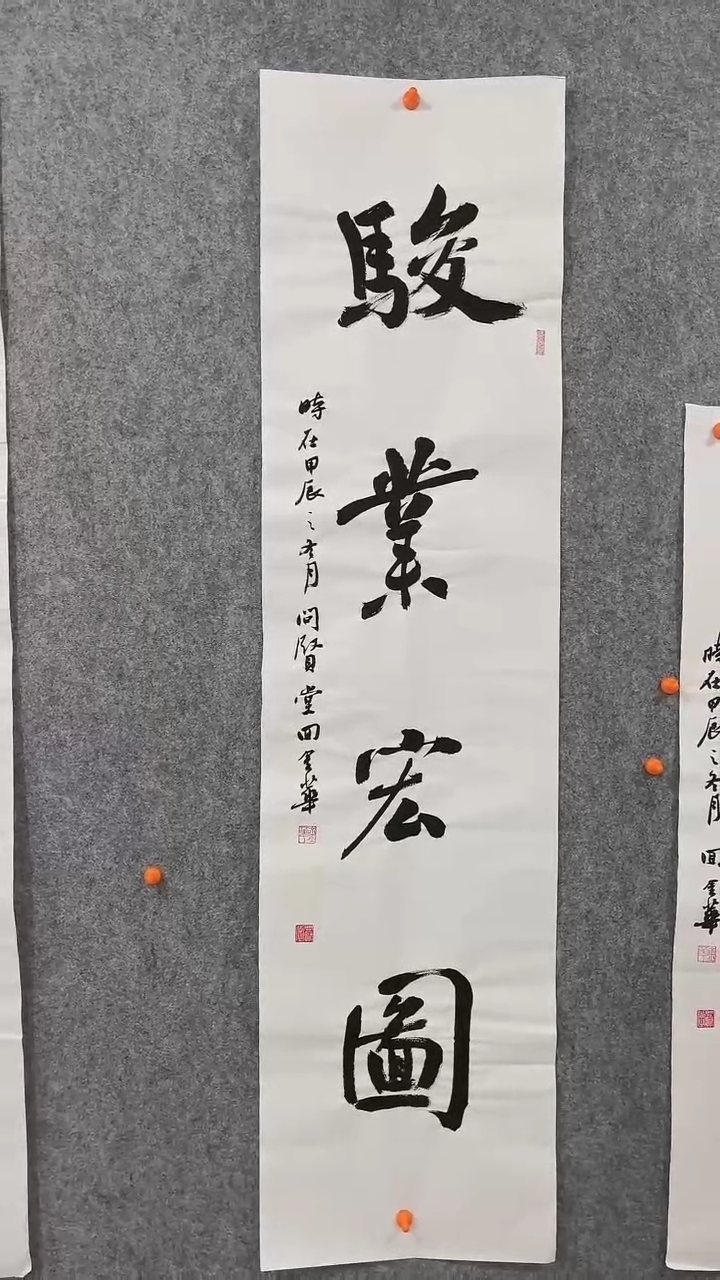 駿業宏圖
時在甲辰之冬月問賢堂回金華
時在甲辰之冬月回金華